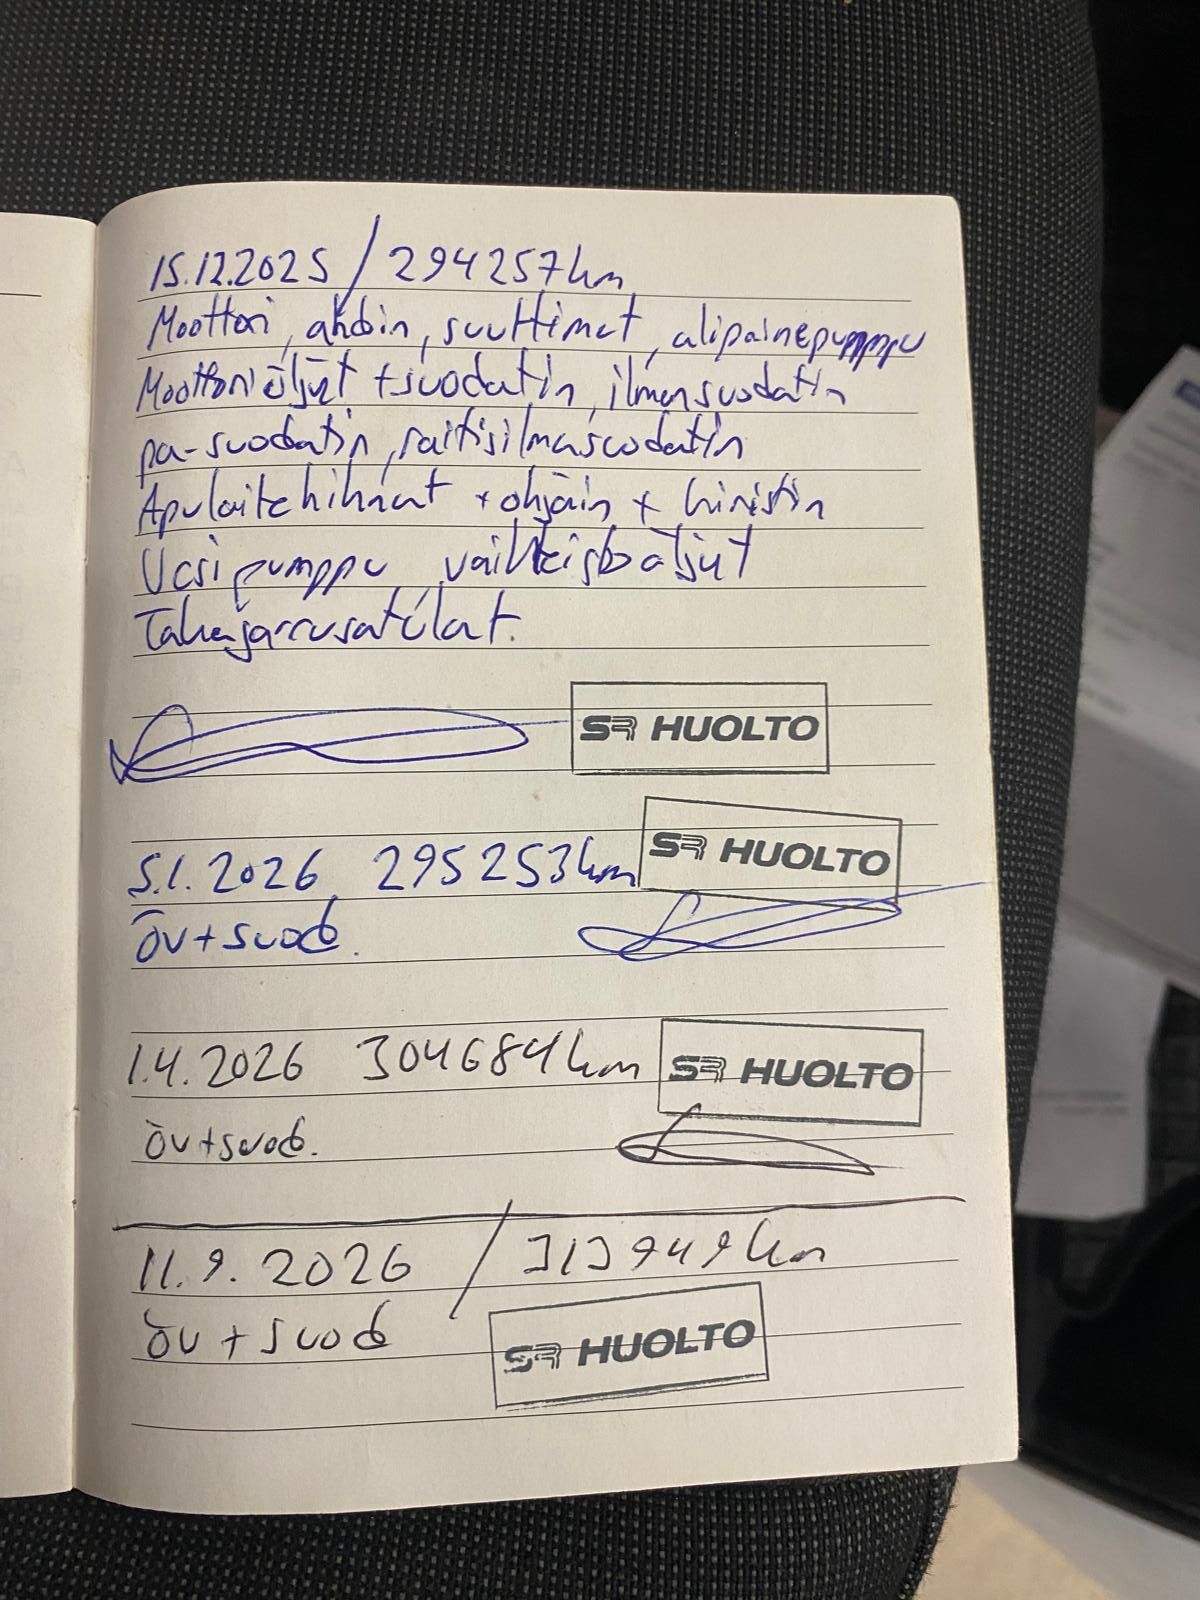 15.12.2025 / 294257km
Moottori, ahdin, suuttimet, alipainepumppu
Moottoriöljyt + suodatin, ilmansuodatin
pa-suodatin, raitisilmasuodatin
Apulaitehihnat + ohjain + kiristin
Vesipumppu, vaihteistoöljyt
Takajarrusatulat.
SR HUOLTO
5.1.2026 295253km SR HUOLTO
öv+suod.
1.4.2026 304684km SR HUOLTO
öv+suod.
11.9.2026 / 313949km
öv + suod
SR HUOLTO